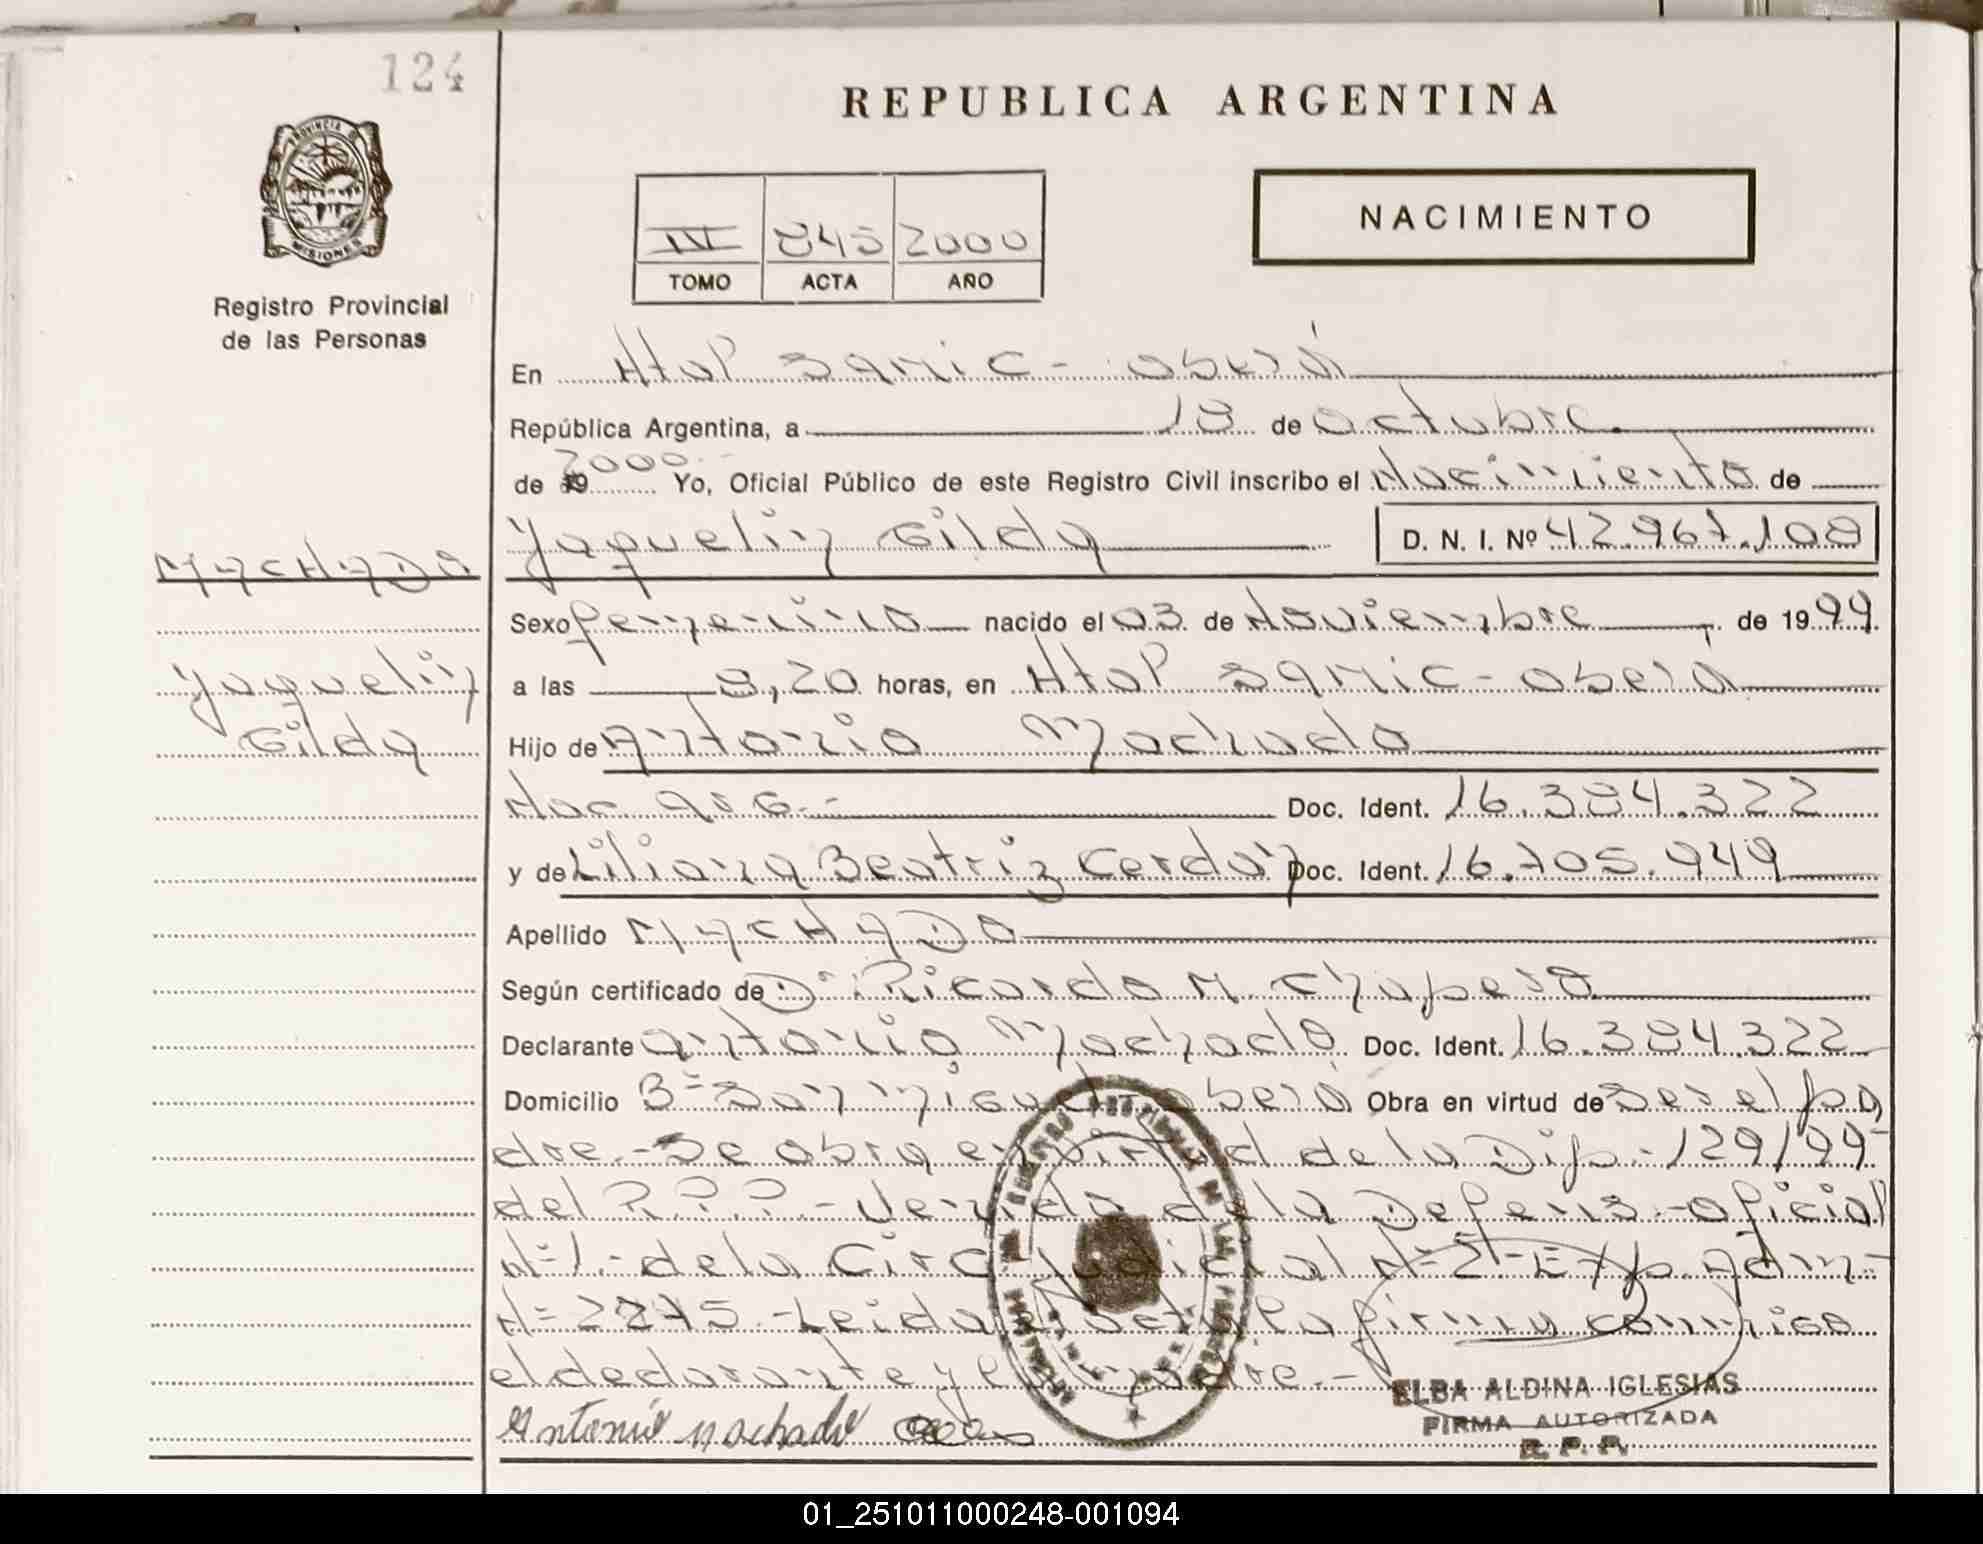 124
REPUBLICA ARGENTINA
PROVINCIA D MISIONES
Registro Provincial
de las Personas
IV 845 2000
TOMO ACTA AÑO
NACIMIENTO
En Htal Samic - Oberá
República Argentina, a 18 de Octubre
de 19 2000.- Yo, Oficial Público de este Registro Civil inscribo el Nacimiento de
MACHADO Yaquelin Gilda D. N. I. Nº 42.967.108
Sexo femenino nacido el 03 de Noviembre de 1999
Yaquelin a las 8,20 horas, en Htal Samic - Oberá
Gilda Hijo de Antonio Machado
Nac. Arg.- Doc. Ident. 16.384.322
y de Liliana Beatriz Cerdan Doc. Ident. 16.705.949
Apellido MACHADO
Según certificado de Dr. Ricardo M. Chapero
Declarante Antonio Machado Doc. Ident. 16.384.322
Domicilio Bº San Miguel Oberá Obra en virtud de ser el pa
dre.- Se obra en virtud de la Disp.- 129/99-
del R.P.P.- Venida de la Defens.- Oficial
Nº 1.- de la Circ. Judicial Nº 2 - Exp. Adm-
Nº 2275.- Leida el acta la firma conmigo
el declarante y la madre.-
Antonio Machado
ELBA ALDINA IGLESIAS
FIRMA AUTORIZADA
R. P. P.
01_251011000248-001094